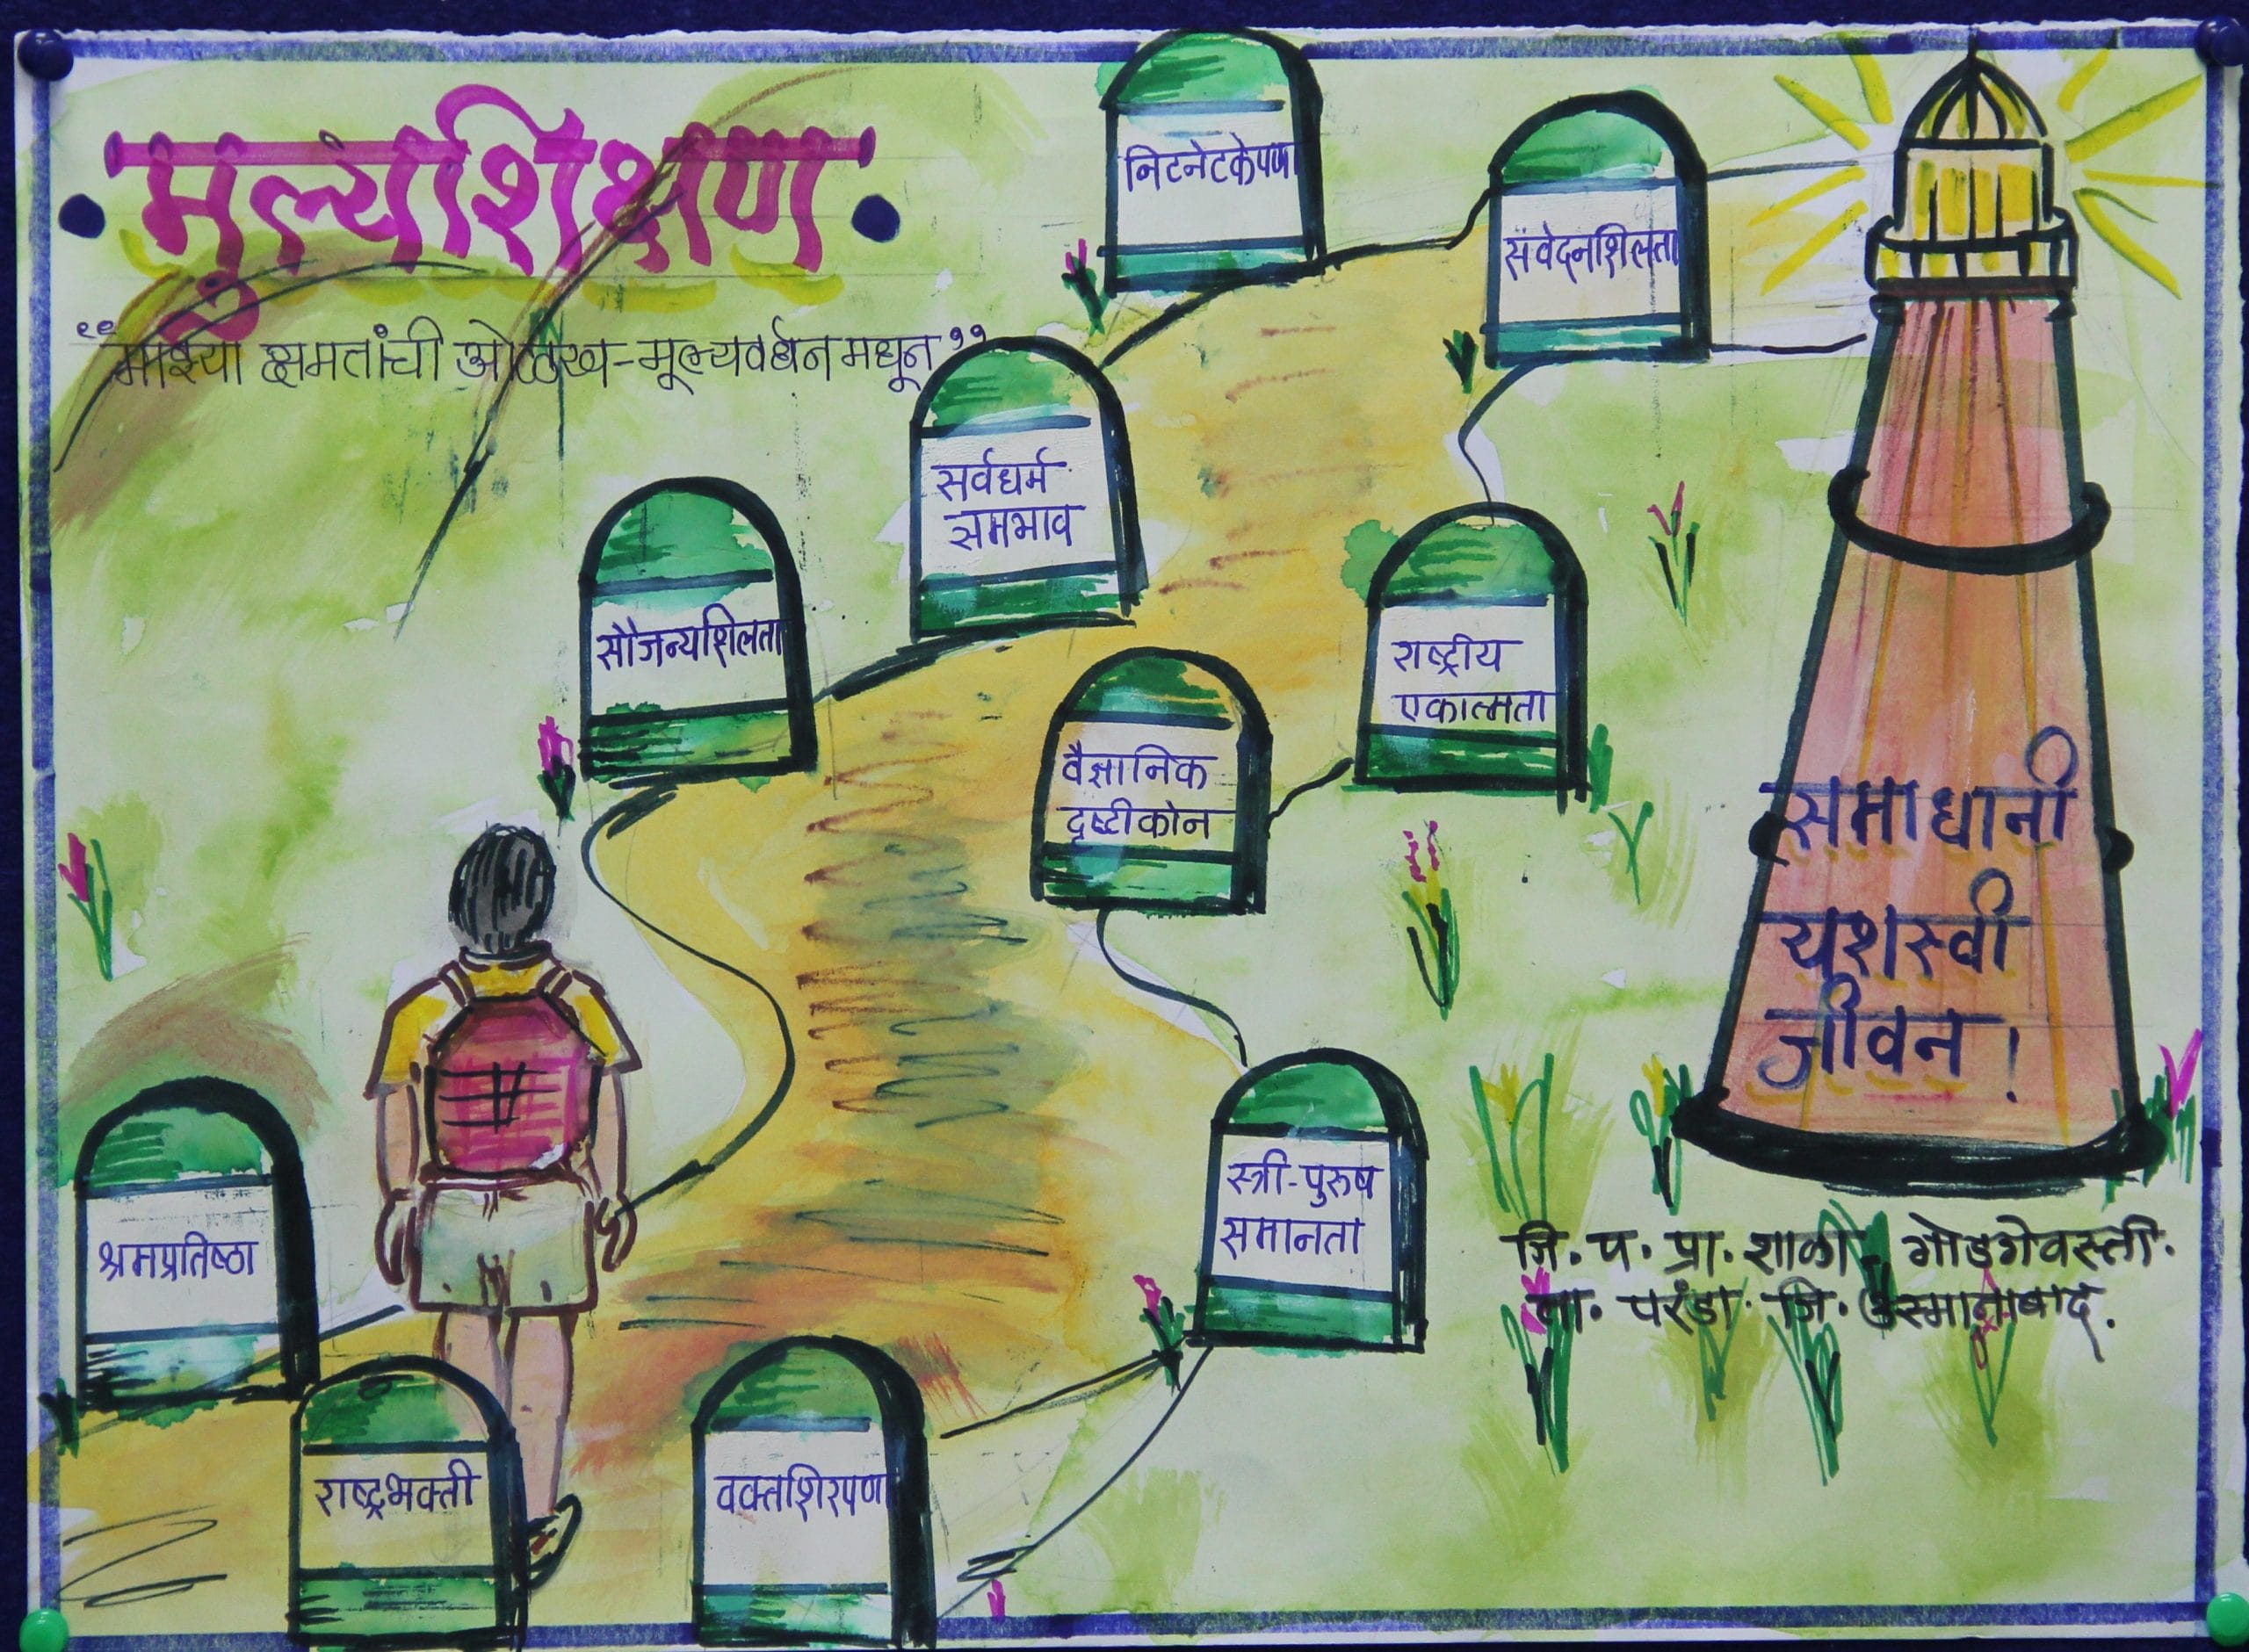 मुल्यशिक्षण
“माझ्या क्षमतांची ओळख-मूल्यवर्धन मधून”
निटनेटकेपणा
संवेदनशिलता
सर्वधर्म
समभाव
सौजन्यशिलता
राष्ट्रीय
एकात्मता
वैज्ञानिक
दृष्टीकोन
स्त्री-पुरुष
समानता
श्रमप्रतिष्ठा
राष्ट्रभक्ती
वक्तशिरपणा
समाधानी
यशस्वी
जीवन!
जि. प. प्रा. शाळा - गोडगेवस्ती.
ता. परंडा. जि. उस्मानाबाद.